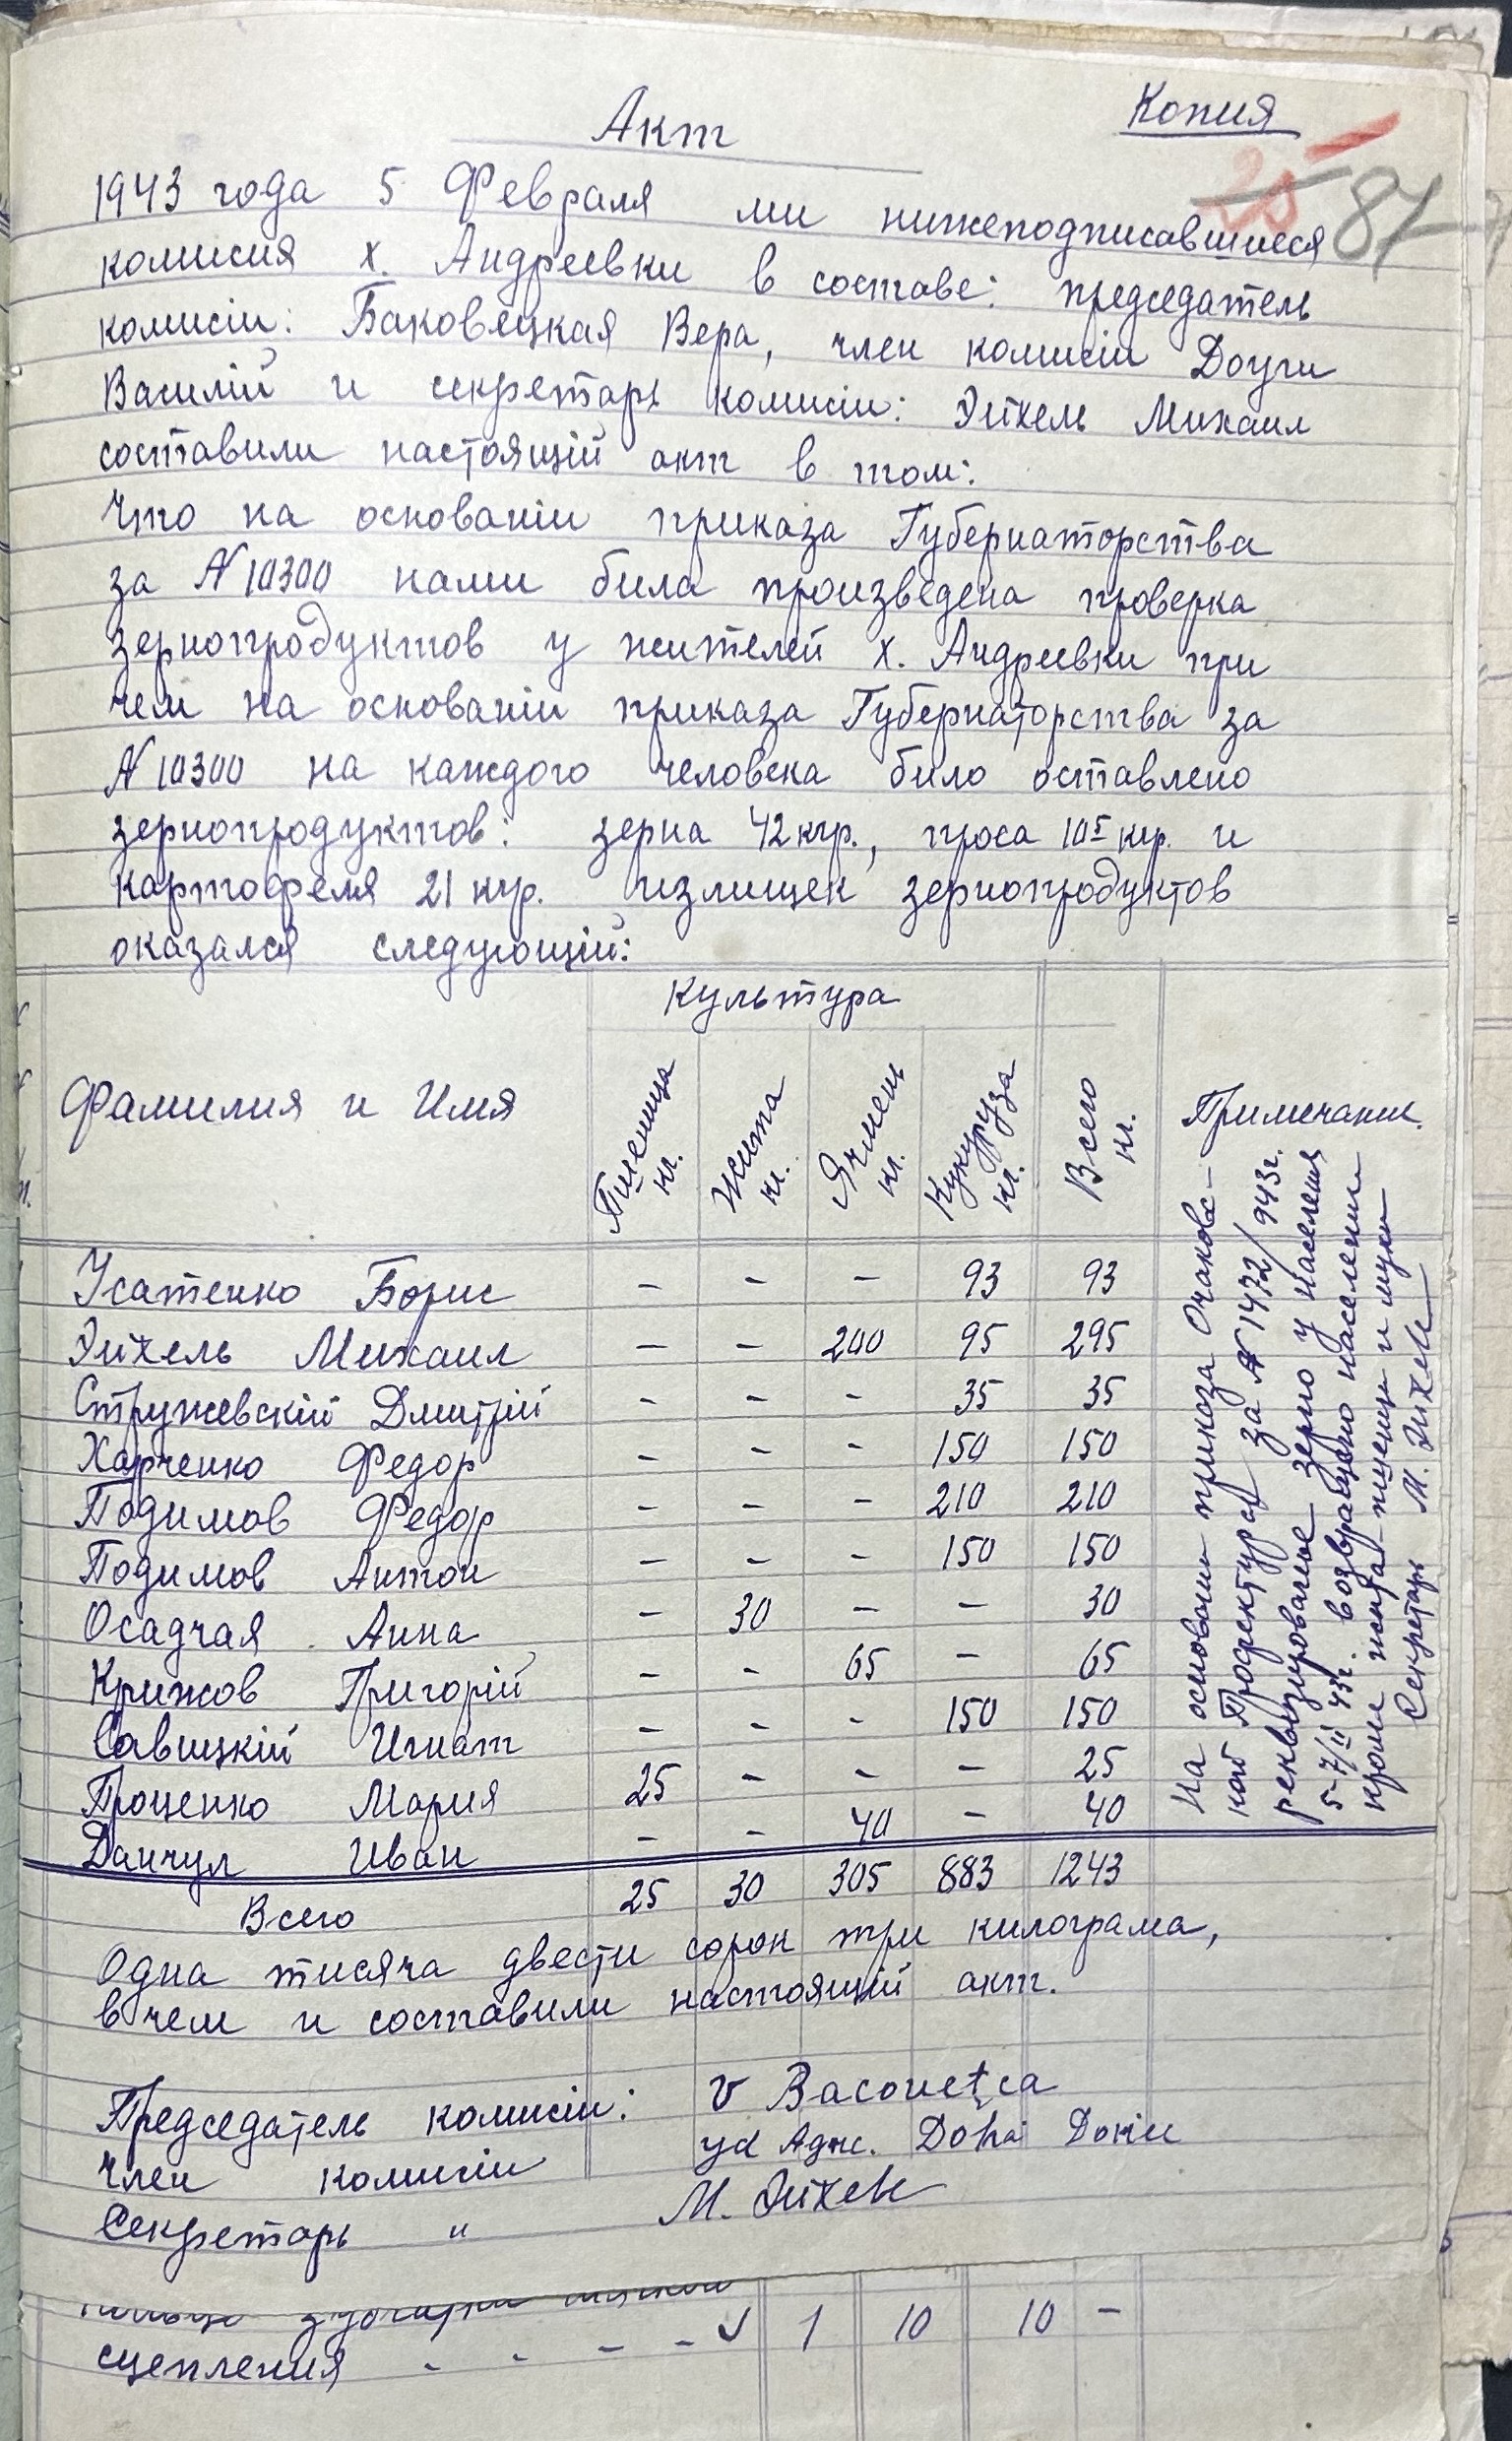 Копия
Акт
25 87
1943 года 5 Февраля ми нижеподписавшиеся
комисия х. Андреевки в составе: председатель
комисіи: Баковецкая Вера, член комисіи Доуги
Василій и секретарь комисіи: Эйхель Михаил
составили настоящій акт в том:
Что на основаніи приказа Губернаторства
за N 10300 нами била произведена проверка
зернопродуктов у жителей х. Андреевки при
чем на основаніи приказа Губернаторства за
N 10300 на каждого человека било оставлено
зернопродуктов: зерна 42 кгр., проса 10⁵ кгр. и
картофеля 21 кгр. излишек зернопродуктов
оказался следующій:
Культура
Фамилия и Имя Пшеница кг. Жита кг. Ячмень кг. Кукуруза кг. Всего кг. Примечание.
Усатенко Борис - - - 93 93
Эйхель Михаил - - 200 95 295
Стружевскій Дмитрій - - - 35 35
Харченко Федор - - - 150 150
Подимов Федор - - - 210 210
Подимов Антон - - - 150 150
Осадчая Анна - 30 - - 30
Крижов Григорій - - 65 - 65
Савицкій Игнат - - - 150 150
Проценко Мария 25 - - - 25
Данчул Иван - - 40 - 40
Всего 25 30 305 883 1243
На основании приказа Очаковс-
кой Префектуры за N 1472/943г.
реквизированое зерно у населения
5-7/II 43г. возвращено населении
кроме жита пшеници и муки
Секретарь М. Эйхель
Одна тисяча двести сорок три килограма,
в чем и составили настоящий акт.
Председатель комисіи: V Bacovețca
Член комисіи Адж. Doha Доніи
Секретарь " М. Эйхель
сцепления - - - - √ 1 10 10 -